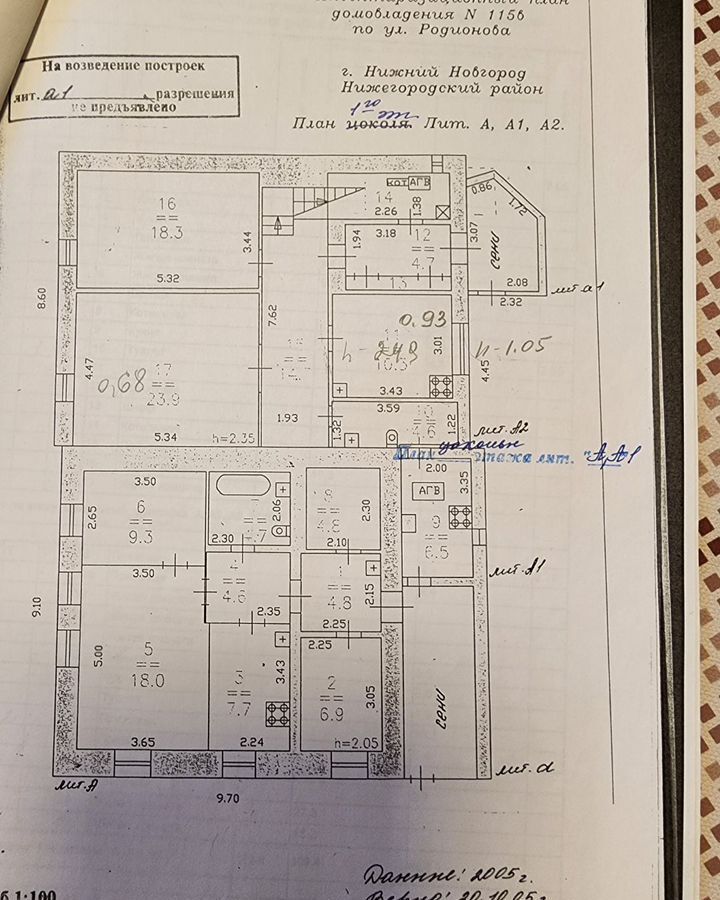 домовладения N 115б
по ул. Родионова
На возведение построек
лит. а1 разрешения
не предъявлено
г. Нижний Новгород
Нижегородский район
1го эт
План цоколя. Лит. А, А1, А2.
16
18.3
3.44
5.32
14
КОТ АГВ
2.26
1.38
0.86
1.72
3.07
сени
2.08
2.32
лит. а1
3.18
12
4.7
1.94
13
8.60
7.62
4.47
17
23.9
0,68
5.34
h=2.35
1.93
0.93
h-2.43
3.01
3.43
h-1.05
4.45
3.59
1.32
1.22
лит. А2
цокольн
План этажа лит. "А, А1
2.00
3.50
6
9.3
2.65
3.50
2.06
2.30
2.30
4.8
2.10
АГВ
3.35
9
6.5
лит. А1
4.6
2.35
1
4.8
2.15
2.25
9.10
5
18.0
5.00
3.65
3
7.7
3.43
2.24
2.25
2
6.9
3.05
h=2.05
сени
лит. d
лит. А
9.70
Данные: 2005г.
Верно: 20.10.05г.
1:100